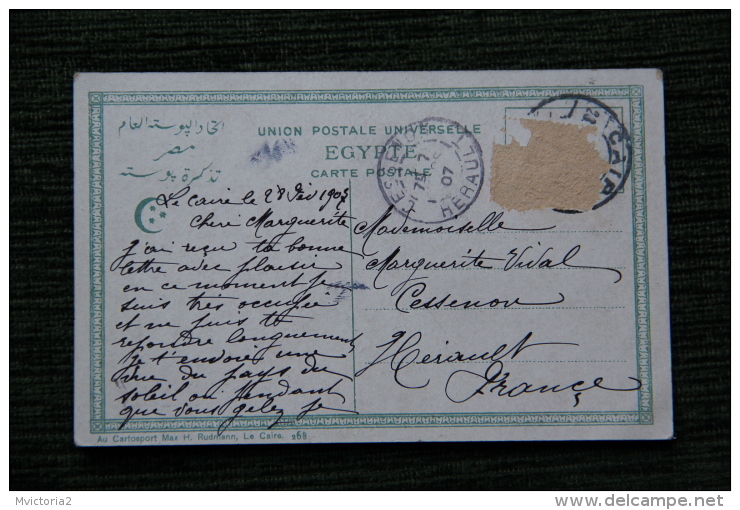 اتحاد البوسته العام
مصر
تذكرة بوسته
UNION POSTALE UNIVERSELLE
EGYPTE
CARTE POSTALE
CESSENON
HERAULT
07
CAIR
Le Caire le 28 Fév 1907
Cheri Marguerite
j'ai reçu ta bonne
lettre avec plaisir
en ce moment je
suis très occupée
et ne puis te
repondre longuement,
Je t'envoie une
vue du pays du
soleil ou pendant
que vous gelez je
Mademoiselle
Marguerite Vidal
Cessenon
Hérault
France
Au Cartosport Max H. Rudmann, Le Caire. 268
Mvictoria2
delcampe.net